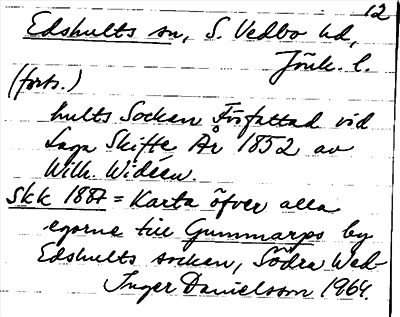 12
Edshults sn, S. Vedbo hd,
Jönk. l.
(forts.)
hults Socken Författad vid
Laga Skifte År 1852 av
Wilh. Widéen.
SKK 1887 = Karta öfver alla
egorne till Gummarps by
Edshults socken, Södra Wed-
Inger Danielsson 1964.